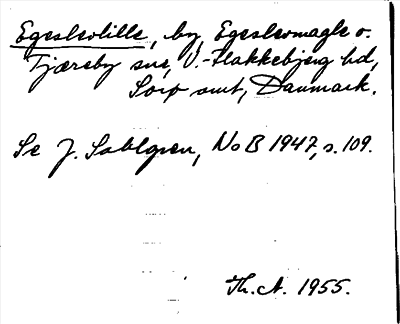 Egeslevlille, by, Egeslevmagle o.
Fjæreby sne, V.-Flakkebjerg hd,
Sorø amt, Danmark.
Se J. Sahlgren, NoB 1947, s. 109.
Th. A. 1955.